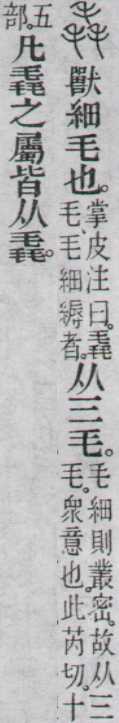 毳獸細毛也。掌皮注曰。毳毛、毛細縟者。从三毛。毛細則叢密。故从三毛。衆意也。此芮切。十
五部。凡毳之屬皆从毳。